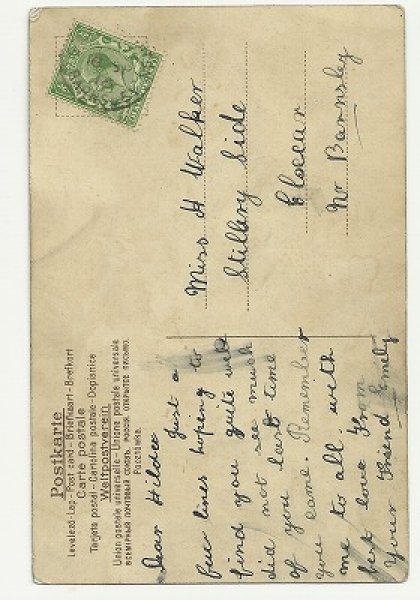 Postkarte
Levelező-Lap - Post card - Briefkaart - Brefkort
Carte postale
Tarjeta postal - Cartolina postale - Dopisnice
Weltpostverein
Union postale universelle - Unione postale universale
ВСЕМІРНЫЙ ПОЧТОВЫЙ СОЮЗЪ. РОССІЯ. ОТКРЫТОЕ ПИСЬМО.
Dear Hilda Just a
few lines hoping to
find you quite well
did not see much
of you last time
you came Remember
me to all. with
best love From
Your Friend Emily
Miss H Walker
Side
Nr Barnsley